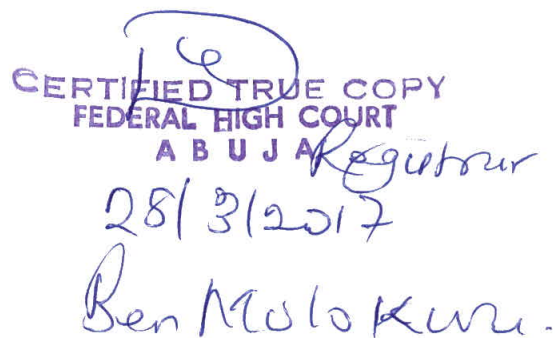 CERTIFIED TRUE COPY
FEDERAL HIGH COURT
ABUJA
Registrar
28/3/2017
Ben